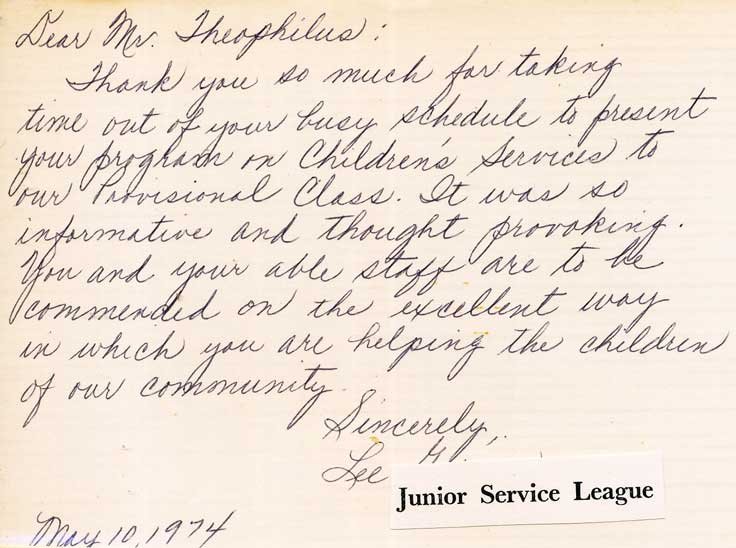 Dear Mr. Theophilus:
Thank you so much for taking
time out of your busy schedule to present
your program on Children's Services to
our Provisional Class. It was so
informative and thought provoking.
You and your able staff are to be
commended on the excellent way
in which you are helping the children
of our community.
Sincerely,
Lee
Junior Service League
May 10, 1974